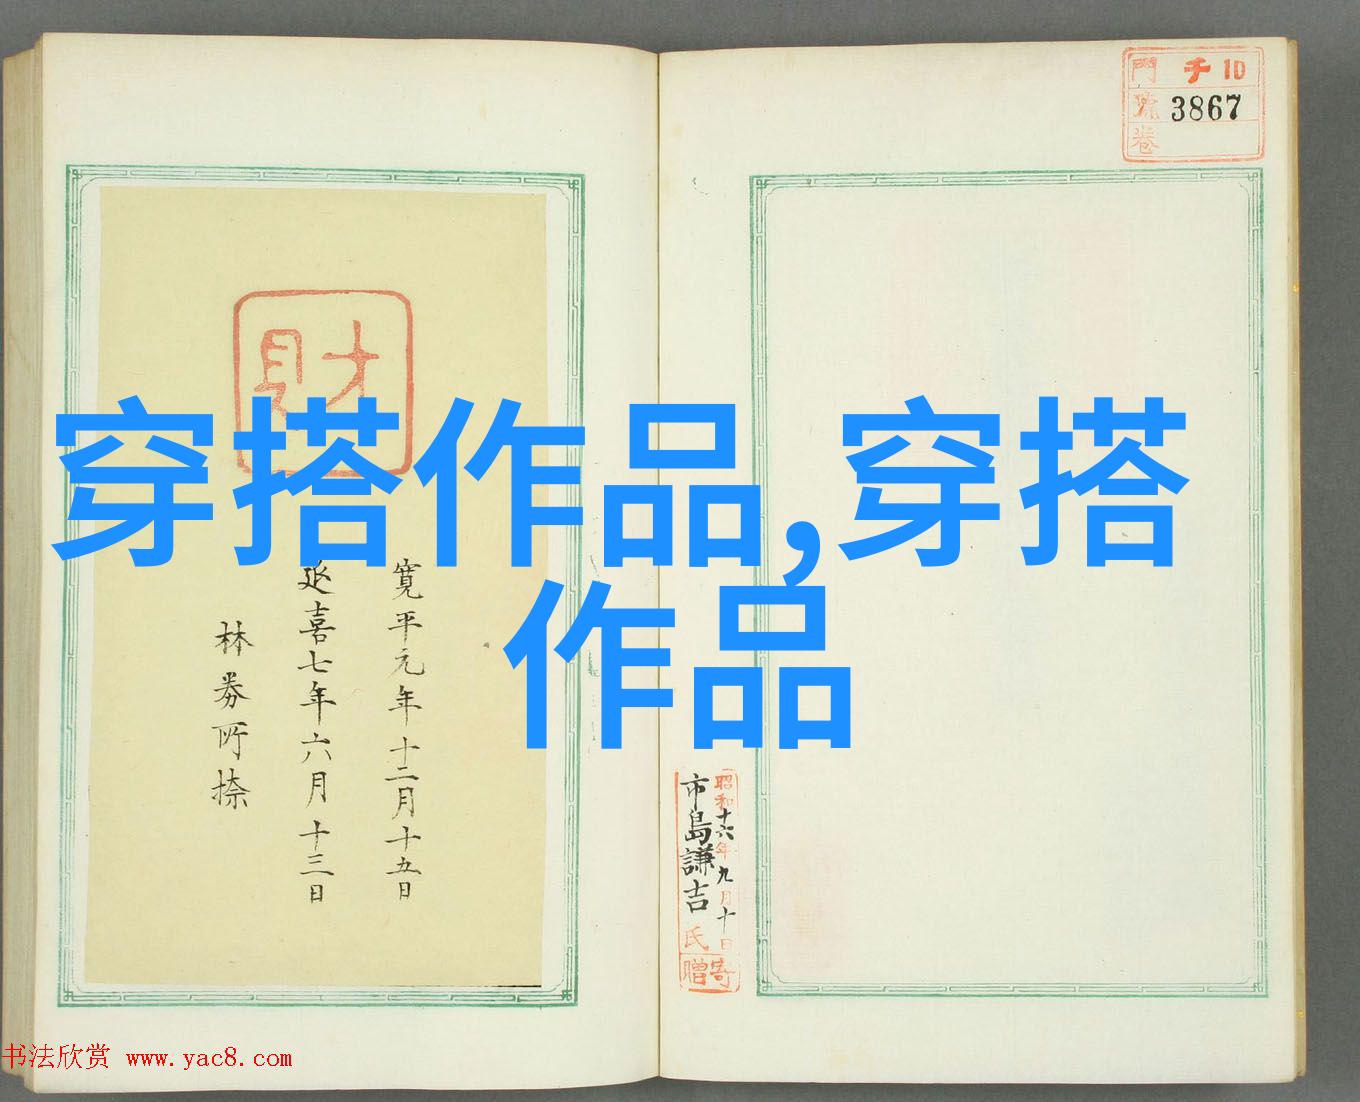 門 千 10
號 3867
卷
財
穿搭作品,穿搭
作品
寛平元年十二月十五日
延喜七年六月十三日
林券所捺
昭和十六年九月十日
市島謙吉氏
寄贈
书法欣赏 www.yac8.com